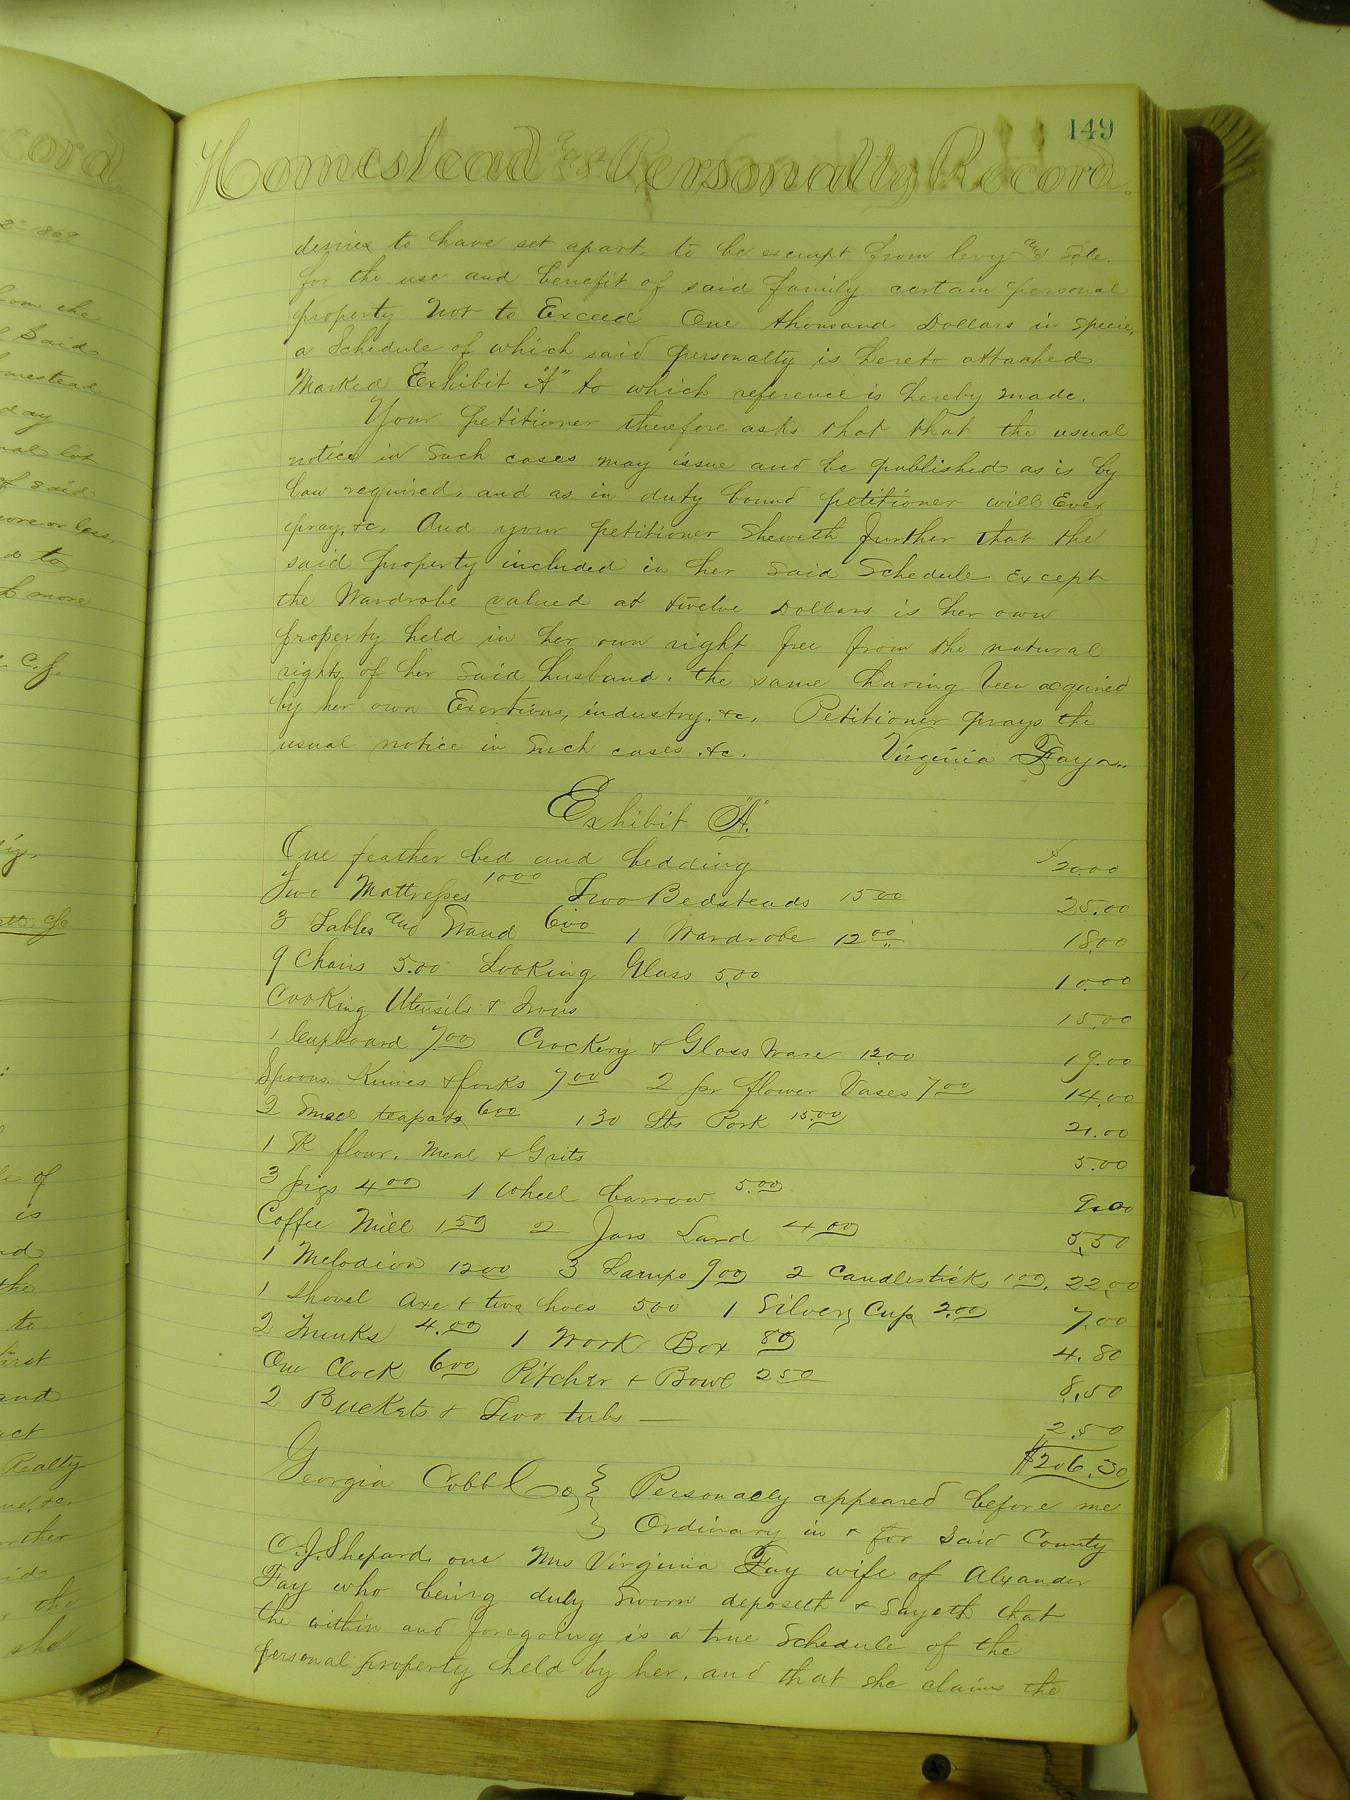 149
Homestead & Personalty Record.
desires to have set apart, to be exempt from levy and sale.
for the use and benefit of said family certain personal
property Not to Exceed One thousand Dollars in Specie,
a Schedule of which said personalty is hereto attached
Marked Exhibit "A" to which reference is hereby made.
Your petitioner therefore asks that that the usual
notice in Such cases may issue and be published as is by
law required, and as in duty bound petitioner will Ever
pray, &c. And your petitioner Sheweth further that the
said property included in her Said Schedule Except
the Wardrobe valued at twelve Dollars is her own
property held in her own right free from the natural
rights of her Said husband. the same having been acquired
by her own Exertions, industry, &c. Petitioner prays the
usual notice in Such cases &c. Virginia Fay
Exhibit "A."
One feather bed and bedding $20.00
Two Mattresses 10.00 Two Bedsteads 15.00 25.00
3 Tables and Stand 6.00 1 Wardrobe 12.00 18.00
9 Chairs 5.00 Looking Glass 5.00 10.00
Cooking Utensils & Irons 15.00
1 Cupboard 7.00 Crockery & Glass Ware 12.00 19.00
Spoons, Knives & forks 7.00 2 pr flower Vases 7.00 14.00
2 Small teapots 6.00 130 lbs Pork 15.00 21.00
1 flour, Meal & Grits 5.00
3 pigs 4.00 1 Wheel barrow 5.00 9.00
Coffee Mill 1.50 2 Jars Lard 4.00 5.50
1 Melodion 12.00 3 Lamps 9.00 2 Candlesticks 1.00, 22.00
1 Shovel axe & two hoes 5.00 1 Silver Cup 2.00 7.00
2 Trunks 4.00 1 Work Box 80 4.80
One Clock 6.00 Pitcher & Bowl 2.50 8.50
2 Buckets & Two tubs — 2.50
$206.30
Georgia Cobb Co } Personally appeared before me
Ordinary in & for Said County
O.J. Shepard, one Mrs Virginia Fay wife of Alexander
Fay who being duly Sworn deposeth & Sayeth that
the within and foregoing is a true Schedule of the
personal property held by her, and that she claims the